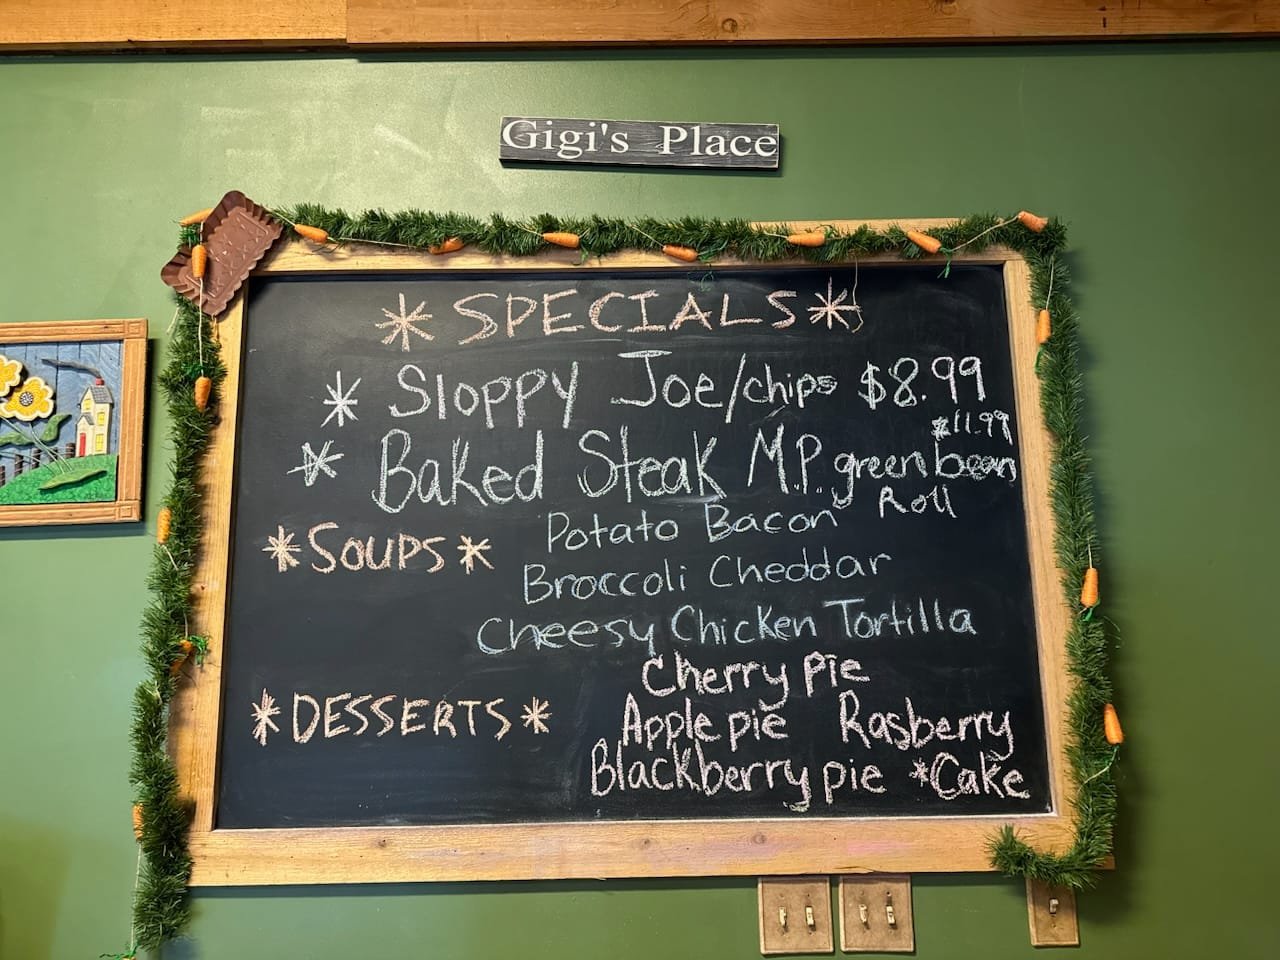 Gigi's Place
*SPECIALS*
* Sloppy Joe/chips $8.99
$11.99
* Baked Steak M.P. green bean
Roll
*SOUPS* Potato Bacon
Broccoli Cheddar
Cheesy Chicken Tortilla
Cherry Pie
*DESSERTS* Apple pie Rasberry
Blackberry pie *Cake